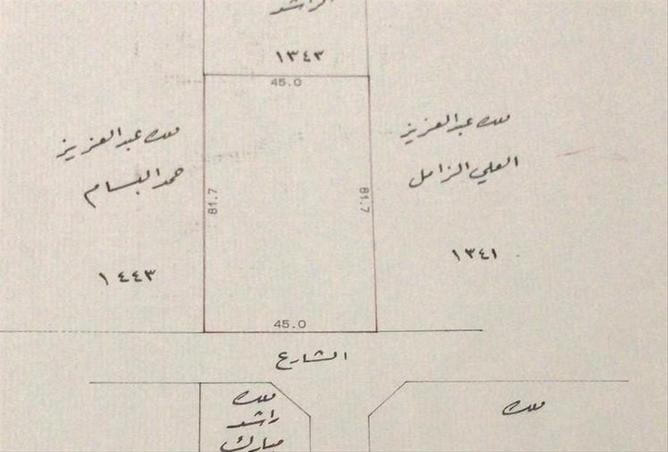 الراشد
١٣٤٣
45.0
ملك عبدالعزيز
حمد البسام
١٤٤٣
81.7
81.7
ملك عبدالعزيز
العلي الزامل
١٣٤١
45.0
الشارع
ملك
راشد
مبارك
ملك